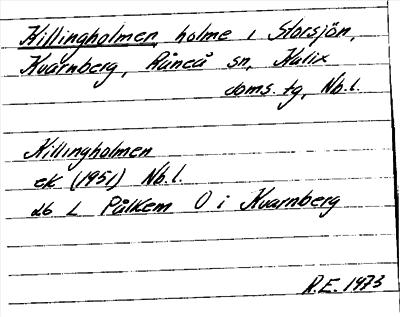 Killingholmen, holme i Storsjön,
Kvarnberg, Råneå sn, Kalix
doms. tg, Nb.l.
Killingholmen
ek (1951) Nb.l.
db L Pålkem O i Kvarnberg
R.E. 1973